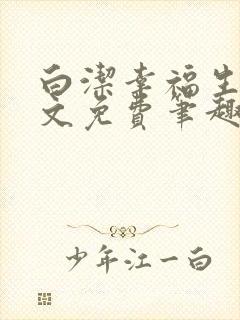 白潔幸福生
文免費筆趣
少年江一白